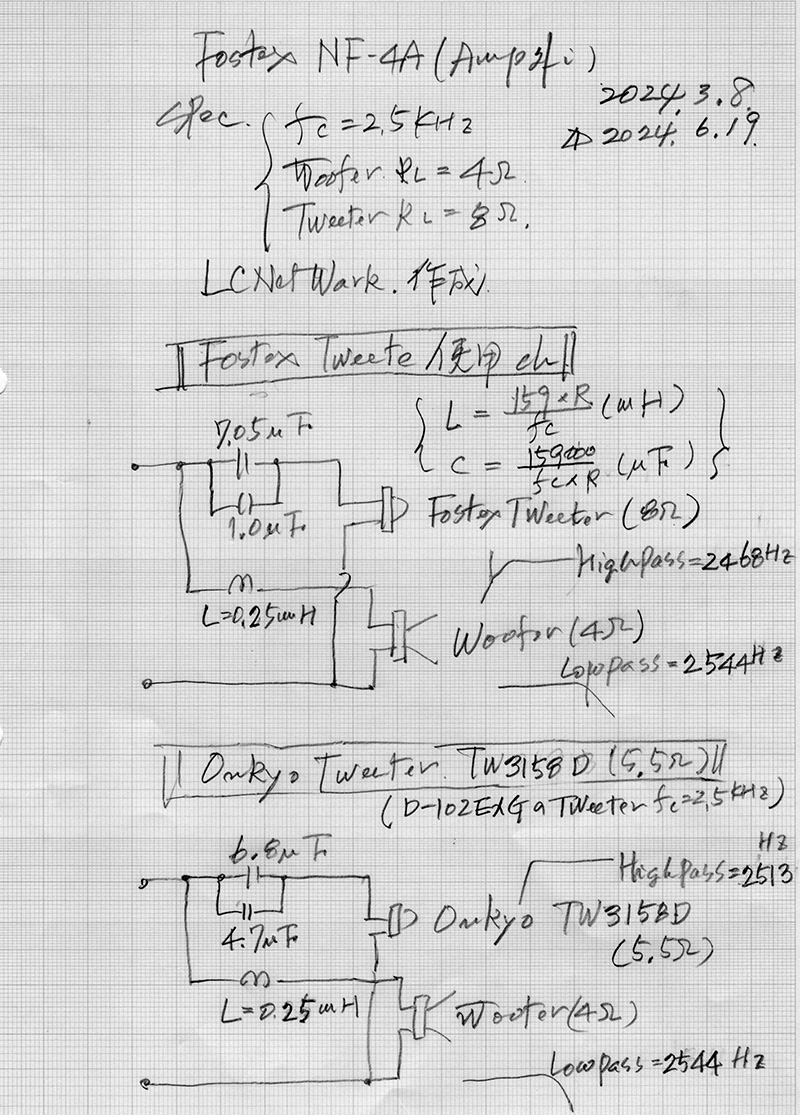 Fostex NF-4A (Ampﾅｼ)
2024. 3. 8.
⊿ 2024. 6. 19.
Spec.
fc = 2,5KHz
Woofer RL = 4Ω
Tweeter RL = 8Ω.
LC NetWork. 作成.
Fostex Tweete 使用 ch
L = 159×R / fc (mH)
C = 159000 / fc×R (μF)
7.05μF
1.0μF
Fostex Tweeter (8Ω)
High pass = 2468Hz
L=0.25mH
Woofer (4Ω)
Low pass = 2544Hz
Onkyo Tweeter. TW3158D (5,5Ω)
(D-102EXG a Tweeter fc=2,5KHz)
6.8μF
High pass = 2513 Hz
4.7μF
Onkyo TW3158D
(5.5Ω)
L=0.25mH
Woofer (4Ω)
Low pass = 2544 Hz